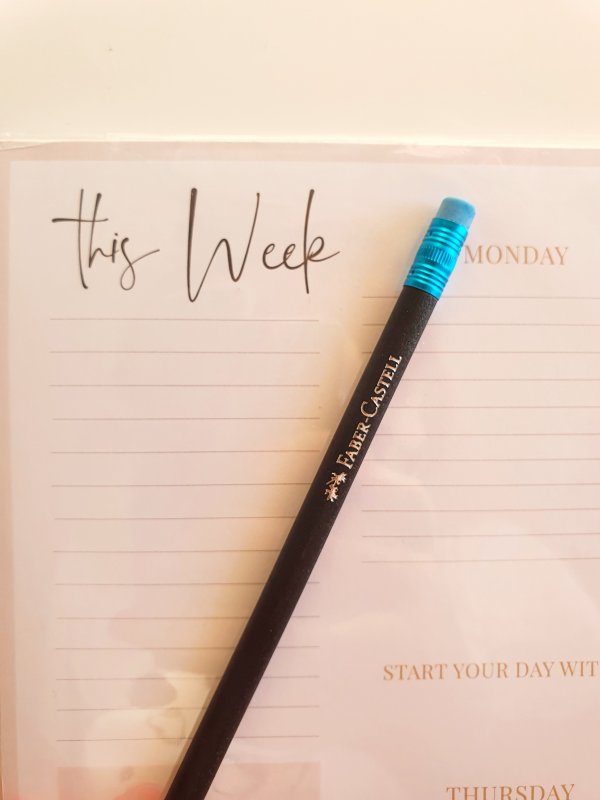 this Week
MONDAY
FABER-CASTELL
START YOUR DAY WIT
THURSDAY